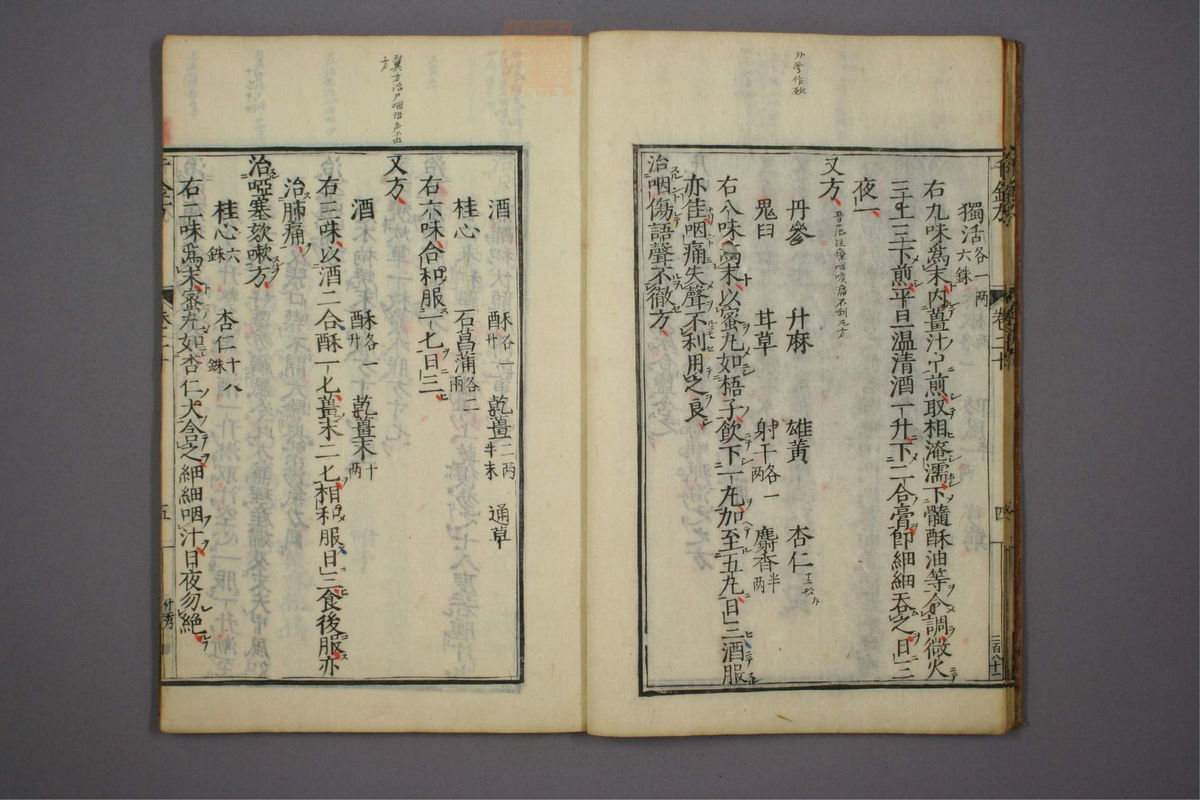 獨活各一兩六銖
右九味爲末内薑汁中煎取相淹濡下髓酥油等令調微火
三上三下煎平旦温清酒一升下二合膏即細細吞之日三
夜一
又方
丹參 升麻 雄黄 杏仁
鬼臼 甘草 射干各一兩 麝香半兩
右八味爲末以蜜丸如梧子飲下一丸加至五丸日三酒服
亦佳咽痛失聲不利用之良
治咽傷語聲不徹方
卷二十
四
酒 酥各一升 乾薑二兩半末 通草
桂心 石菖蒲各二兩
右六味合和服一七日三
又方
酒 酥各一升 乾薑末十兩
右三味以酒二合酥一七薑末二七相和服日三食後服亦
治肺痛
治啞塞欬嗽方
桂心六銖 杏仁十八銖
右二味爲末蜜丸如杏仁大含之細細咽汁日夜勿絶
五